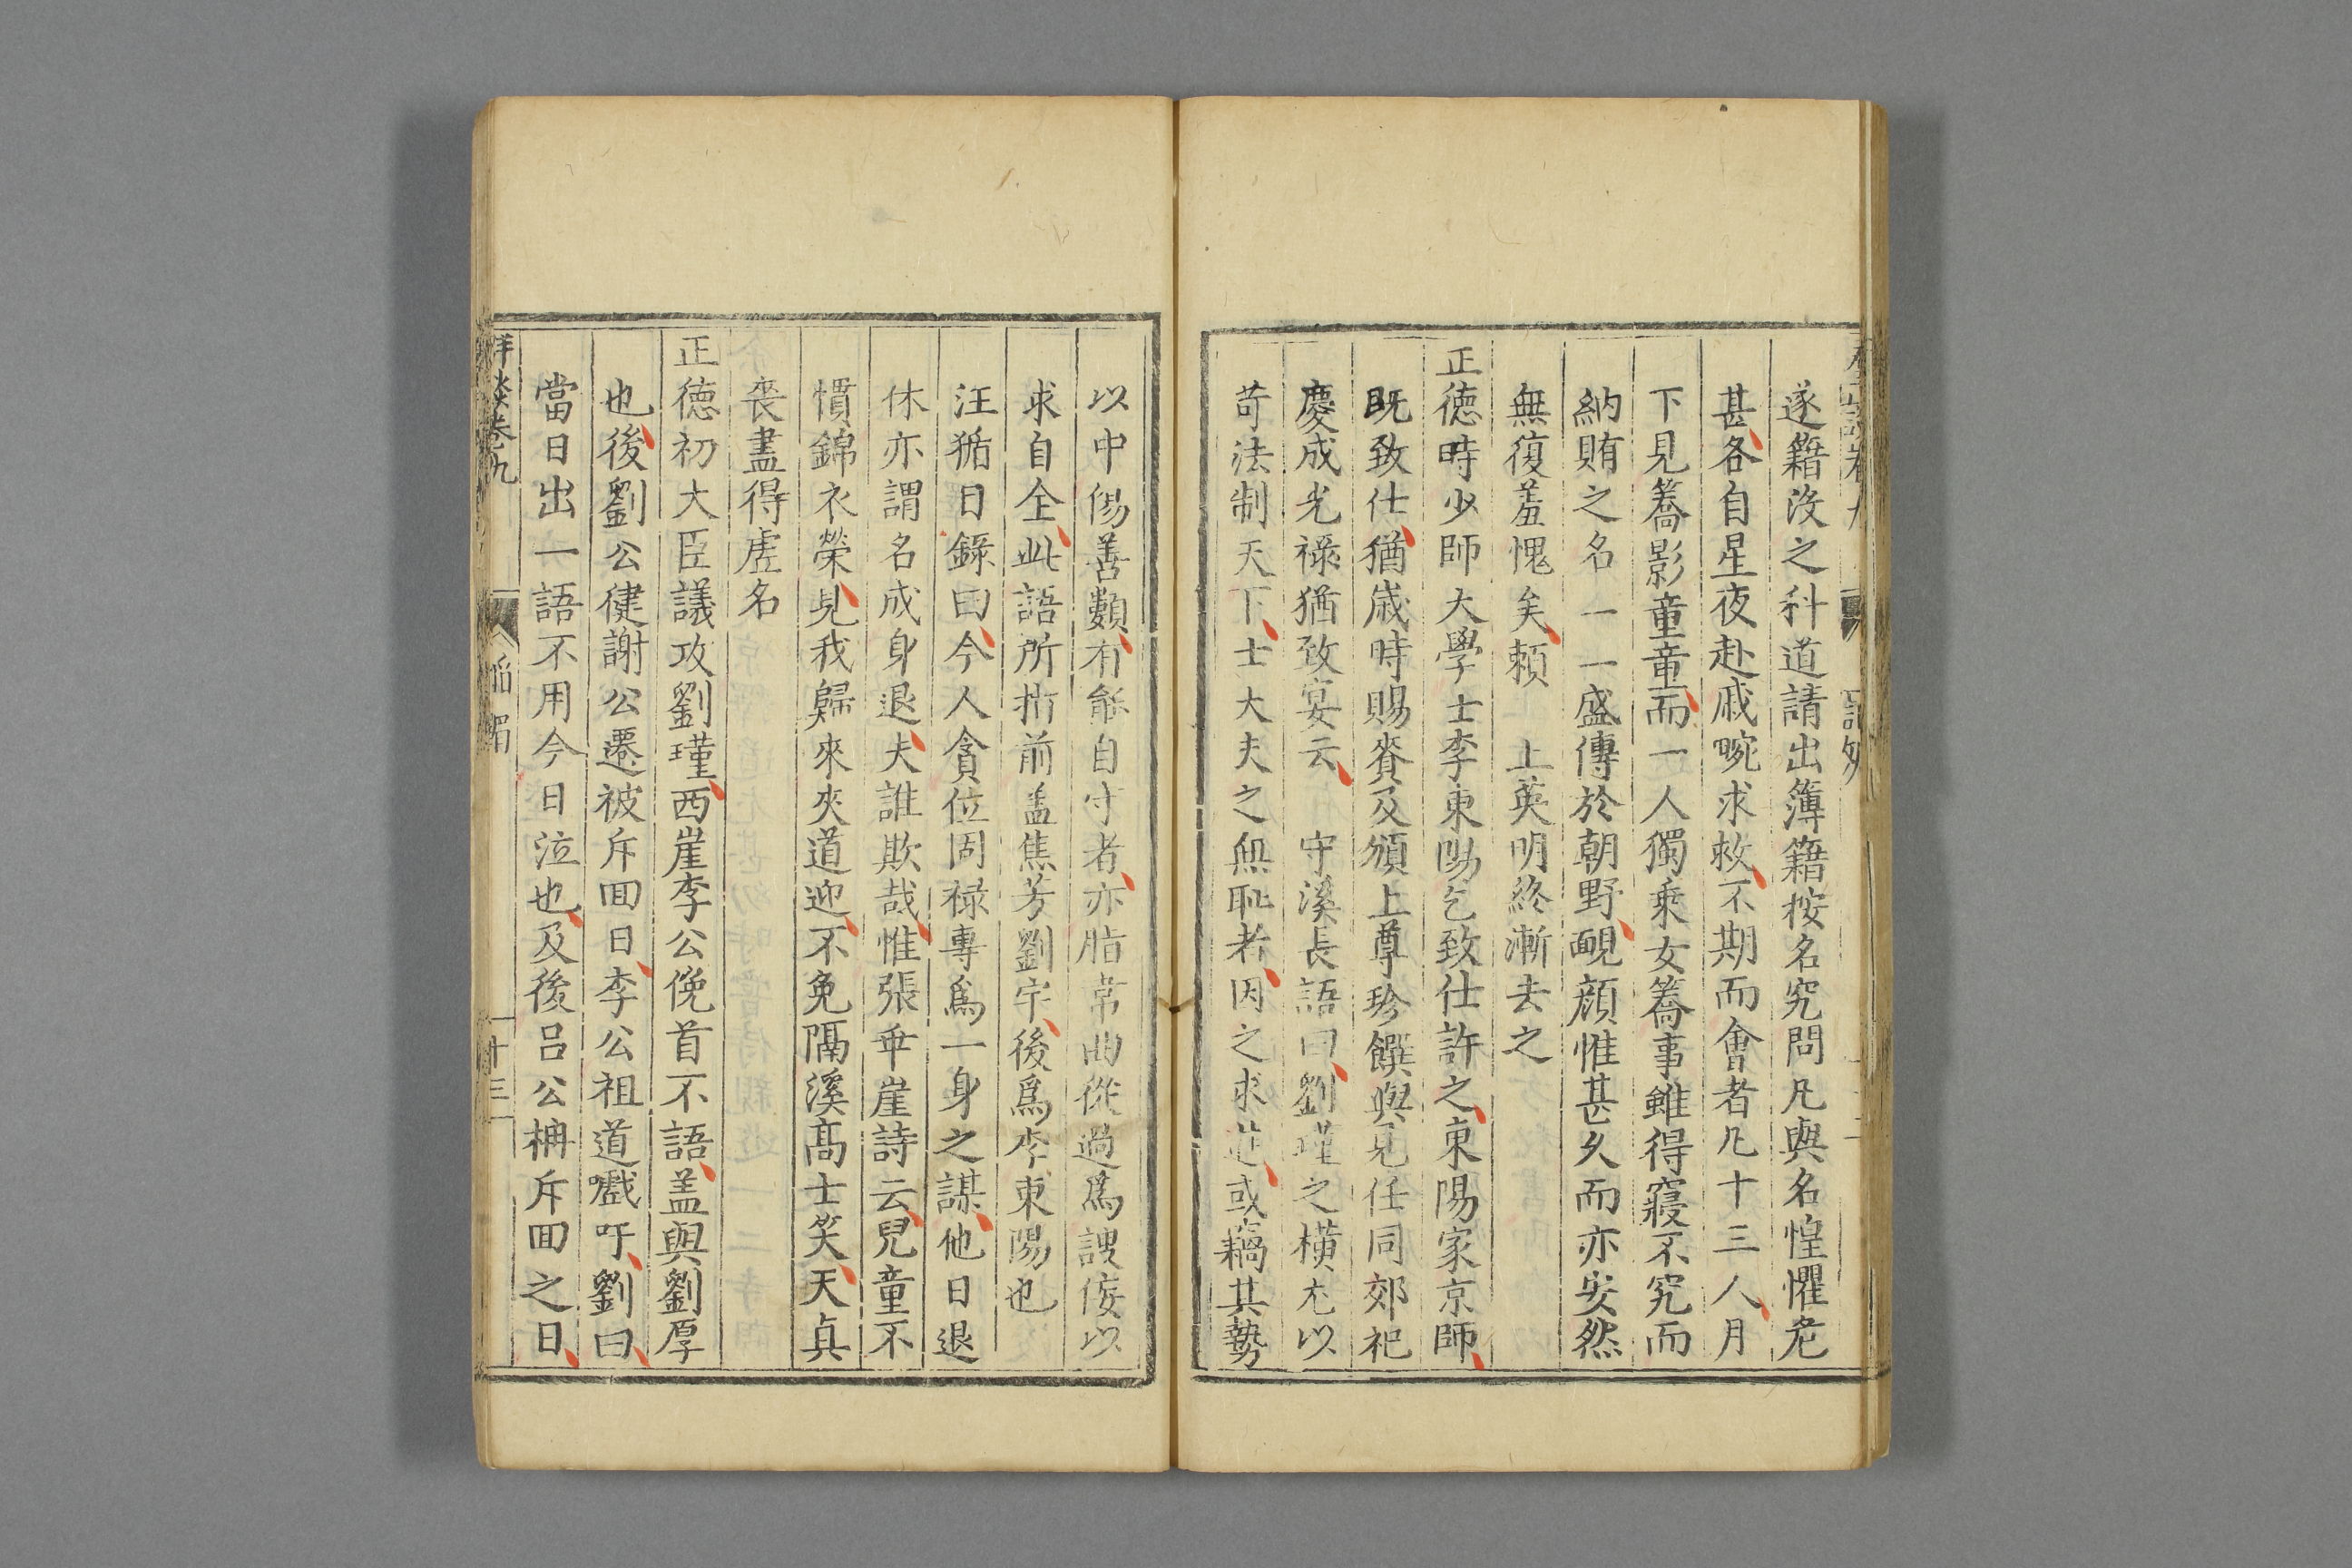 遂籍没之科道請出簿籍按名究問凡與名惶懼危
甚各自星夜赴戚畹求救不期而會者凡十三人月
下見籌影童童而一人獨乗女籌事雖得寢不究而
納賄之名一一盛傳於朝野靦顔惟甚久而亦安然
無復羞愧矣頼　上英明終漸去之
正徳時少師大學士李東陽乞致仕許之東陽家京師
既致仕猶歳時賜賚及頒上尊珍饌與見任同郊祀
慶成光禄猶致宴云　守溪長語曰劉瑾之横尤以
苛法制天下士大夫之無耻者因之求進或藉其勢
以中傷善類有能自守者亦脂韋曲從過為謏侫以
求自全此語所指前盖焦芳劉宇後爲李東陽也
汪循日錄曰今人貪位固禄專爲一身之謀他日退
休亦謂名成身退夫誰欺哉惟張乖崖詩云兒童不
慣錦衣榮見我歸來夾道迎不免隔溪髙士笑天真
喪盡得虚名
正徳初大臣議攻劉瑾西崖李公俛首不語盖與劉厚
也後劉公健謝公遷被斥囬日李公祖道嘘吁劉曰
當日出一語不用今日泣也及後吕公柟斥囬之日
卷九
十三